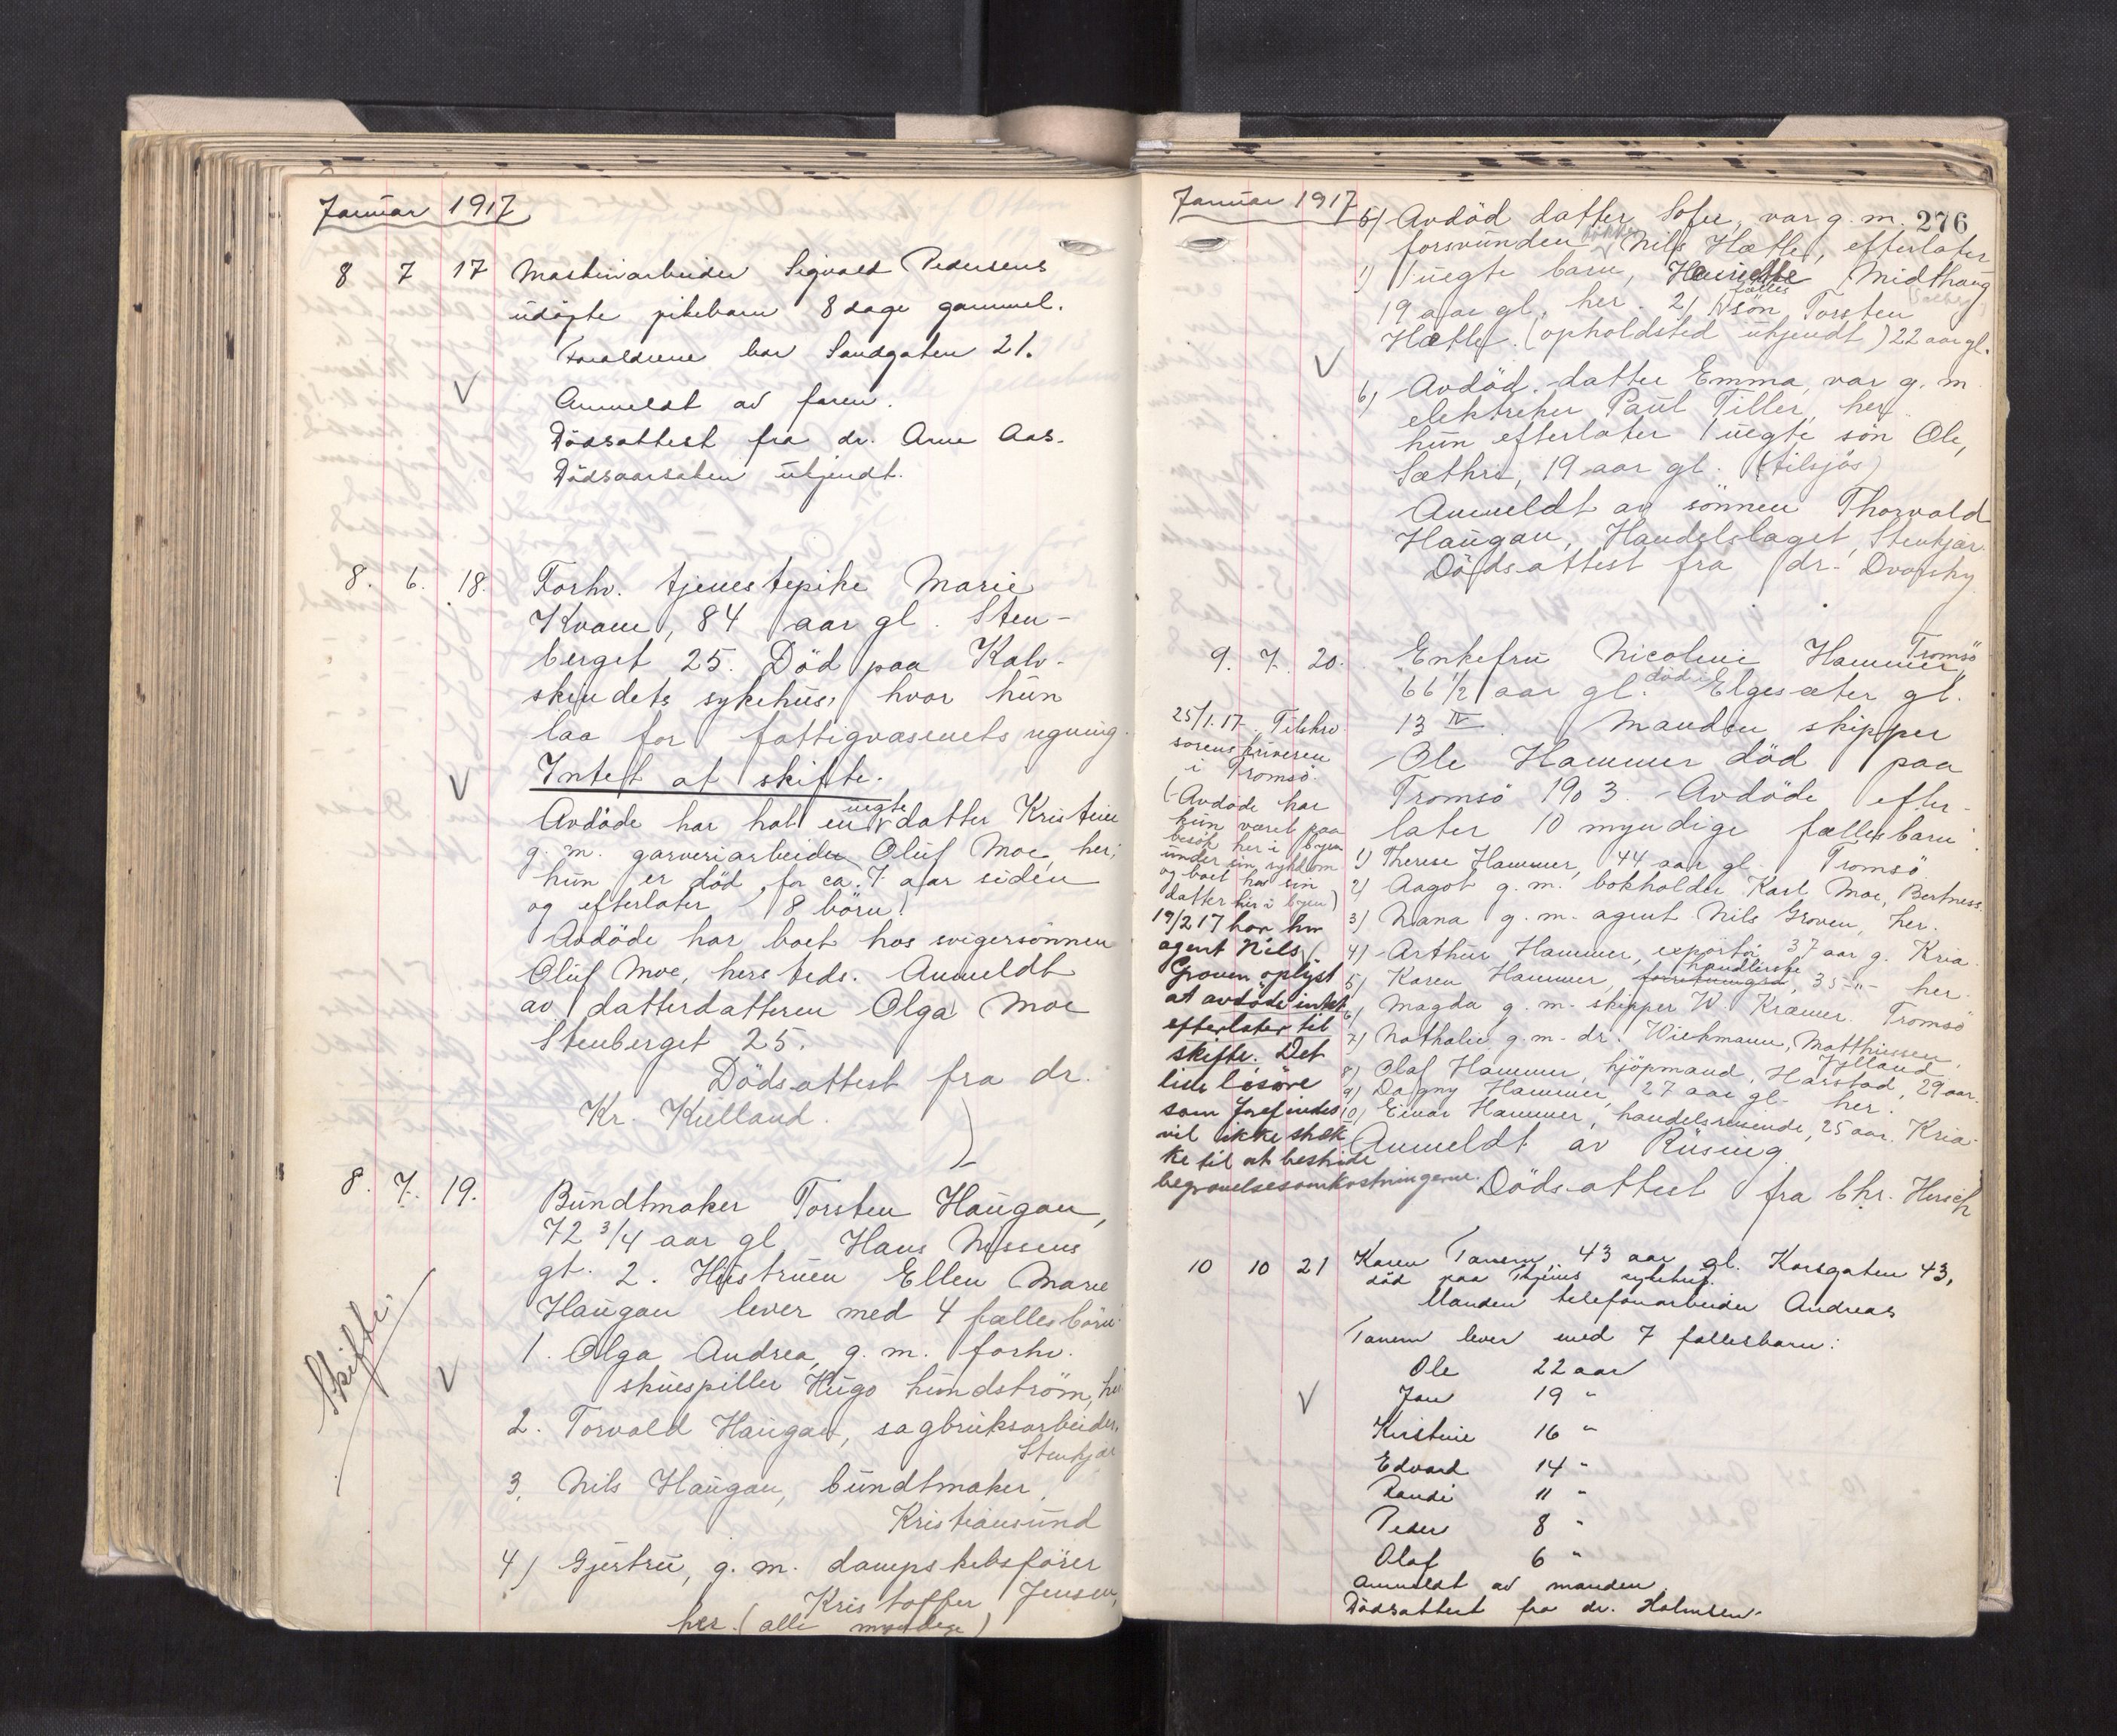 Januar 1917
8 7 17 Maskinarbeider Sigvald Pedersens
udøpte pikebarn 8 dage gammel.
Forældrene bor Sandgaten 21.
Anmeldt av faren.
Dödsattest fra dr. Arne Aas.
Dødsaarsaken ukjendt.
8. 6. 18. Forhv. tjenestepike Marie
Kvam, 84 aar gl. Sten-
berget 25. Död paa Kalv-
skindets sykehus, hvor hun
laa for fattigvæsenets regning.
Intet at skifte.
Avdöde har hat en uegte datter Kristine
g. m. garveriarbeider Oluf Moe, her;
hun er död for ca. 7 aar siden
og efterlater 8 börn.
Avdöde har boet hos svigersönnen
Oluf Moe, hersteds. Anmeldt
av datterdatteren Olga Moe
Stenberget 25.
Dödsattest fra dr.
Kr. Kielland.
8. 7. 19. Bundtmaker Torsten Haugan,
72 3/4 aar gl Hans Nissens
gt. 2. Hustruen Ellen Marie
Haugan lever med 4 fællesbörn:
Skifte.
1. Olga Andrea, g. m. forhv.
skuespiller Hugo Lundström, her
2. Torvald Haugan, sagbruksarbeider,
Stenkjær
3. Nils Haugan, bundtmaker,
Kristiansund
4) Gjertru, g. m. dampskibsförer
Kristoffer Jensen,
her. (alle myndige)
Januar 1917
276
5) Avdöd datter Sofie, var g. m.
forsvunden Nils Hætle, efterlater
1) 1 uegte barn, Midthaug
19 aar gl. her. 2) 1 fælles sön Torsten
Hætle. (opholdsted ukjendt) 22 aar gl.
6) Avdöd datter Emma, var g. m.
elektriker Paul Tiller, her.
hun efterlater 1 uegte sön Ole,
Sæthre, 19 aar gl. (tilsjös)
Anmeldt av sönnen Thorvald
Haugan, Handelslaget, Stenkjær.
Dödsattest fra dr.
9. 7. 20. Enkefru Nicoline Hammer, Tromsö
66 1/2 aar gl. död i Elgesæter gt.
13 IV. Manden skipper
Ole Hammer död paa
Tromsö 1903. Avdöde efter-
later 10 myndige fællesbarn:
1) Therese Hammer, 44 aar gl. Tromsö.
2) Aagot g. m. bokholder Karl Moe, Bertness.
3) Nana g. m. agent Nils Groven, her.
4) Arthur Hammer, exportör 37 aar g. Kria
5) Karen Hammer, handlerske, 35 -"- her.
6) Magda g. m. skipper W. Kræmer. Tromsö
7) Nathalie g. m. dr. Wichmann, Matthiessen
Jylland
8) Olaf Hammer, kjöpmand, Harstad, 29 aar.
9) Dagny Hammer, 27 aar gl. her.
10) Einar Hammer, handelsreisende, 25 aar. Kria.
Anmeldt av Rüsing
Dödsattest fra Chr. Hirsch
25/1.17. Tilskrev
sorenskriveren
i Tromsö.
(Avdöde har
kun været paa
besök her i byen
under sin sykdom
og boet hos sin
datter her i byen)
19/2 17 har hr
agent Nils
Groven oplyst
at avdöde intet
efterlater til
skifte. Det
lille lösöre
som forefindes
vil ikke stræk-
ke til at bestride
begravelsesomkostningerne.
10 10 21 Karen Tanem, 43 aar gl. Korsgaten 43,
död paa sykehus.
Manden telefonarbeider Andreas
Tanem lever med 7 fællesbarn:
Ole 22 aar
Jon 19 "
Kirstine 16 "
Edvard 14 "
Randi 11 "
Peder 8 "
Olaf 6 "
Anmeldt av manden.
Dödsattest fra dr. Holmsen.